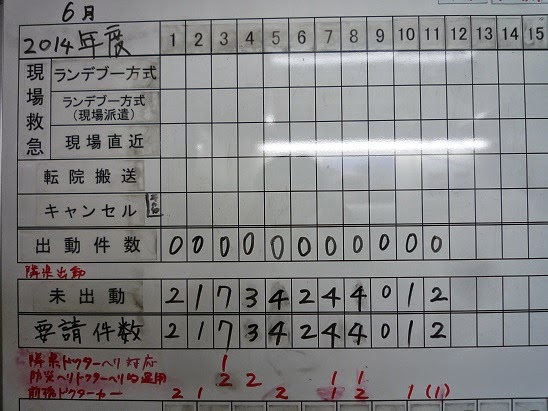 6月
2014年度 1 2 3 4 5 6 7 8 9 10 11 12 13 14 15
現場救急
ランデブー方式
ランデブー方式
(現場派遣)
現場直近
転院搬送
キャンセル
出動件数 0 0 0 0 0 0 0 0 0 0 0
隣県出動
未出動 2 1 7 3 4 2 4 4 0 1 2
要請件数 2 1 7 3 4 2 4 4 0 1 2
隣県ドクターヘリ対応 1
防災ヘリドクターヘリ的運用 2 2 1 1
前橋ドクターカー 2 1 2 1 2 1 (1)